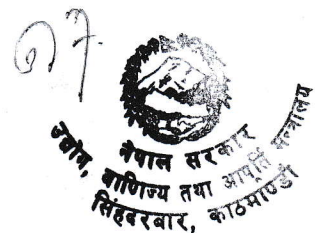 नेपाल सरकार
उद्योग, वाणिज्य तथा आपूर्ति मन्त्रालय
सिंहदरबार, काठमाण्डौ